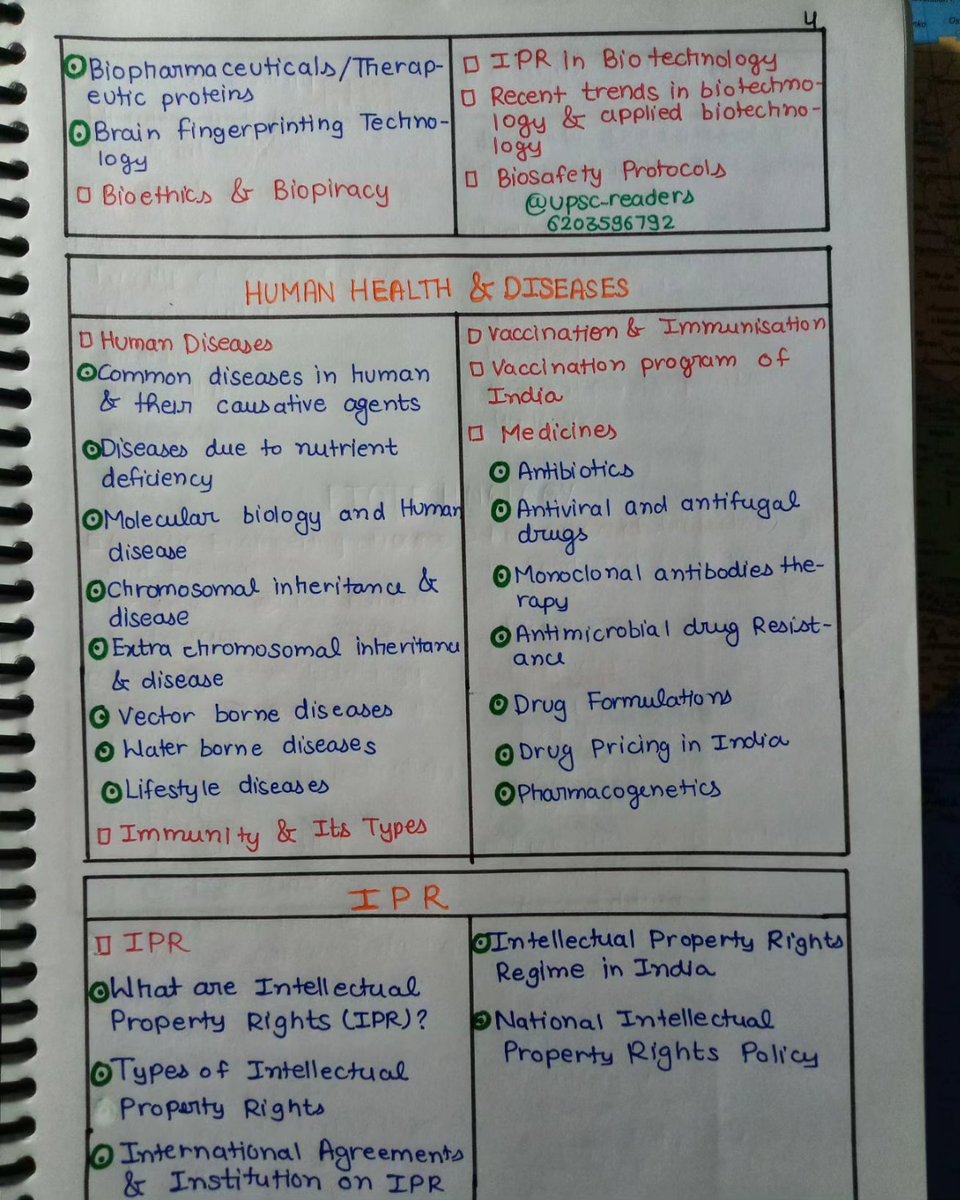 4
Biopharmaceuticals/Therap-
eutic proteins
Brain fingerprinting Techno-
logy
Bioethics & Biopiracy
IPR In Biotechnology
Recent trends in biotechno-
logy & applied biotechno-
logy
Biosafety Protocols
@upsc_readers
6203596792
HUMAN HEALTH & DISEASES
Human Diseases
Common diseases in human
& their causative agents
Diseases due to nutrient
deficiency
Molecular biology and Human
disease
Chromosomal inheritance &
disease
Extra chromosomal inheritance
& disease
Vector borne diseases
Water borne diseases
Lifestyle diseases
Immunity & Its Types
Vaccination & Immunisation
Vaccination program of
India
Medicines
Antibiotics
Antiviral and antifugal
drugs
Monoclonal antibodies the-
rapy
Antimicrobial drug Resist-
ance
Drug Formulations
Drug Pricing in India
Pharmacogenetics
IPR
IPR
What are Intellectual
Property Rights (IPR)?
Types of Intellectual
Property Rights
International Agreements
& Institution on IPR
Intellectual Property Rights
Regime in India
National Intellectual
Property Rights Policy